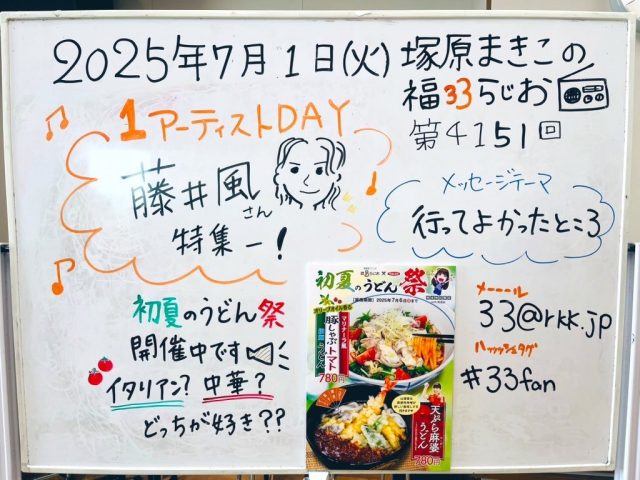 2025年7月1日(火) 塚原まきこの
福33らじお
第4151回
1アーティストDAY
藤井風さん
特集ー!
メッセージテーマ
行ってよかったところ
初夏のうどん祭
開催中です
イタリアン? 中華?
どっちが好き??
メーーール
33@rkk.jp
ハッシュタグ
#33fan
初夏のうどん祭
2025年7月6日
オリーブオイル香る
マリナーラ風
豚しゃぶトマト
780円
天ぷら麻婆
うどん
780円